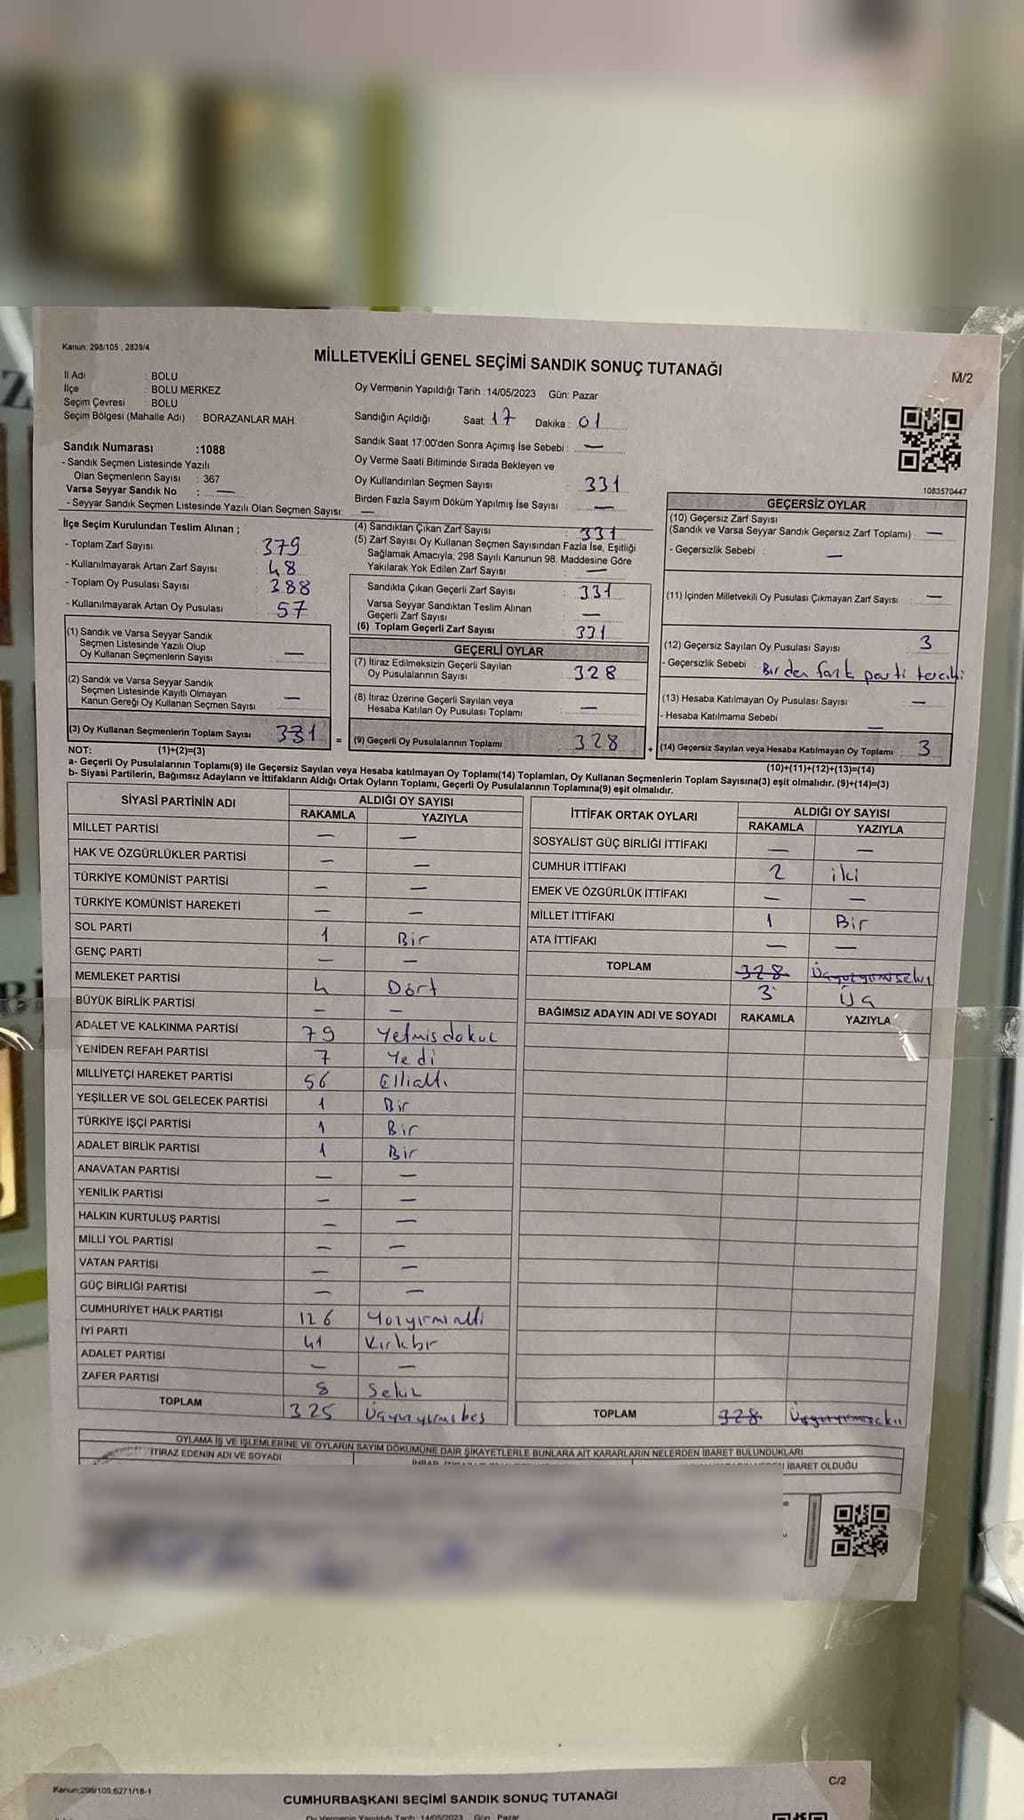 Kanun: 298/105 , 2839/4
MİLLETVEKİLİ GENEL SEÇİMİ SANDIK SONUÇ TUTANAĞI
M/2
İl Adı : BOLU
İlçe : BOLU MERKEZ
Seçim Çevresi : BOLU
Seçim Bölgesi (Mahalle Adı) BORAZANLAR MAH.
Oy Vermenin Yapıldığı Tarih : 14/05/2023 Gün: Pazar
Sandığın Açıldığı Saat: 17 Dakika: 01
Sandık Saat 17:00'den Sonra Açımış İse Sebebi : —
Oy Verme Saati Bitiminde Sırada Bekleyen ve
Oy Kullandırılan Seçmen Sayısı : 331
Birden Fazla Sayım Döküm Yapılmış İse Sayısı : —
Sandık Numarası :1088
- Sandık Seçmen Listesinde Yazılı
Olan Seçmenlerin Sayısı : 367
Varsa Seyyar Sandık No : —
- Seyyar Sandık Seçmen Listesinde Yazılı Olan Seçmen Sayısı: —
1083570447
İlçe Seçim Kurulundan Teslim Alınan ;
- Toplam Zarf Sayısı : 379
- Kullanılmayarak Artan Zarf Sayısı : 48
- Toplam Oy Pusulası Sayısı : 388
- Kullanılmayarak Artan Oy Pusulası : 57
(1) Sandık ve Varsa Seyyar Sandık
Seçmen Listesinde Yazılı Olup
Oy Kullanan Seçmenlerin Sayısı —
(2) Sandık ve Varsa Seyyar Sandık
Seçmen Listesinde Kayıtlı Olmayan
Kanun Gereği Oy Kullanan Seçmen Sayısı : —
(3) Oy Kullanan Seçmenlerin Toplam Sayısı 331
(4) Sandıktan Çıkan Zarf Sayısı : 331
(5) Zarf Sayısı Oy Kullanan Seçmen Sayısından Fazla İse, Eşitliği
Sağlamak Amacıyla, 298 Sayılı Kanunun 98. Maddesine Göre
Yakılarak Yok Edilen Zarf Sayısı : —
Sandıkta Çıkan Geçerli Zarf Sayısı : 331
Varsa Seyyar Sandıktan Teslim Alınan
Geçerli Zarf Sayısı : —
(6) Toplam Geçerli Zarf Sayısı : 331
GEÇERLİ OYLAR
(7) İtiraz Edilmeksizin Geçerli Sayılan
Oy Pusulalarının Sayısı : 328
(8) İtiraz Üzerine Geçerli Sayılan veya
Hesaba Katılan Oy Pusulası Toplamı : —
= (9) Geçerli Oy Pusulalarının Toplamı 328
GEÇERSİZ OYLAR
(10) Geçersiz Zarf Sayısı
(Sandık ve Varsa Seyyar Sandık Geçersiz Zarf Toplamı) : —
- Geçersizlik Sebebi : —
(11) İçinden Milletvekili Oy Pusulası Çıkmayan Zarf Sayısı : —
(12) Geçersiz Sayılan Oy Pusulası Sayısı : 3
- Geçersizlik Sebebi : Birden fazla parti tercihi
(13) Hesaba Katılmayan Oy Pusulası Sayısı : —
- Hesaba Katılmama Sebebi : —
+ (14) Geçersiz Sayılan veya Hesaba Katılmayan Oy Toplamı 3
NOT: (1)+(2)=(3)
(10)+(11)+(12)+(13)=(14)
a- Geçerli Oy Pusulalarının Toplamı(9) ile Geçersiz Sayılan veya Hesaba katılmayan Oy Toplamı(14) Toplamları, Oy Kullanan Seçmenlerin Toplam Sayısına(3) eşit olmalıdır. (9)+(14)=(3)
b- Siyasi Partilerin, Bağımsız Adayların ve İttifakların Aldığı Ortak Oyların Toplamı, Geçerli Oy Pusulalarının Toplamına(9) eşit olmalıdır.
SİYASİ PARTİNİN ADI ALDIĞI OY SAYISI
RAKAMLA YAZIYLA
MİLLET PARTİSİ — —
HAK VE ÖZGÜRLÜKLER PARTİSİ — —
TÜRKİYE KOMÜNİST PARTİSİ — —
TÜRKİYE KOMÜNİST HAREKETİ — —
SOL PARTİ 1 Bir
GENÇ PARTİ — —
MEMLEKET PARTİSİ 4 Dört
BÜYÜK BİRLİK PARTİSİ — —
ADALET VE KALKINMA PARTİSİ 79 Yetmişdokuz
YENİDEN REFAH PARTİSİ 7 Yedi
MİLLİYETÇİ HAREKET PARTİSİ 56 Elliallı
YEŞİLLER VE SOL GELECEK PARTİSİ 1 Bir
TÜRKİYE İŞÇİ PARTİSİ 1 Bir
ADALET BİRLİK PARTİSİ 1 Bir
ANAVATAN PARTİSİ — —
YENİLİK PARTİSİ — —
HALKIN KURTULUŞ PARTİSİ — —
MİLLİ YOL PARTİSİ — —
VATAN PARTİSİ — —
GÜÇ BİRLİĞİ PARTİSİ — —
CUMHURİYET HALK PARTİSİ 126 Yüzyirmialtı
İYİ PARTİ 41 Kırkbir
ADALET PARTİSİ — —
ZAFER PARTİSİ 8 Sekiz
TOPLAM 325 Üçyüzyirmibeş
İTTİFAK ORTAK OYLARI ALDIĞI OY SAYISI
RAKAMLA YAZIYLA
SOSYALİST GÜÇ BİRLİĞİ İTTİFAKI — —
CUMHUR İTTİFAKI 2 iki
EMEK VE ÖZGÜRLÜK İTTİFAKI — —
MİLLET İTTİFAKI 1 Bir
ATA İTTİFAKI — —
TOPLAM 328 Üçyüzyirmisekiz
3 Üç
BAĞIMSIZ ADAYIN ADI VE SOYADI RAKAMLA YAZIYLA
TOPLAM 328 Üçyüzyirmisekiz
OYLAMA İŞ VE İŞLEMLERİNE VE OYLARIN SAYIM DÖKÜMÜNE DAİR ŞİKAYETLERLE BUNLARA AİT KARARLARIN NELERDEN İBARET BULUNDUKLARI
İTİRAZ EDENİN ADI VE SOYADI
İBARET OLDUĞU
Kanun:298/105,6271/18-1
C/2
CUMHURBAŞKANI SEÇİMİ SANDIK SONUÇ TUTANAĞI
Oy Vermenin Yapıldığı Tarih : 14/05/2023 Gün: Pazar